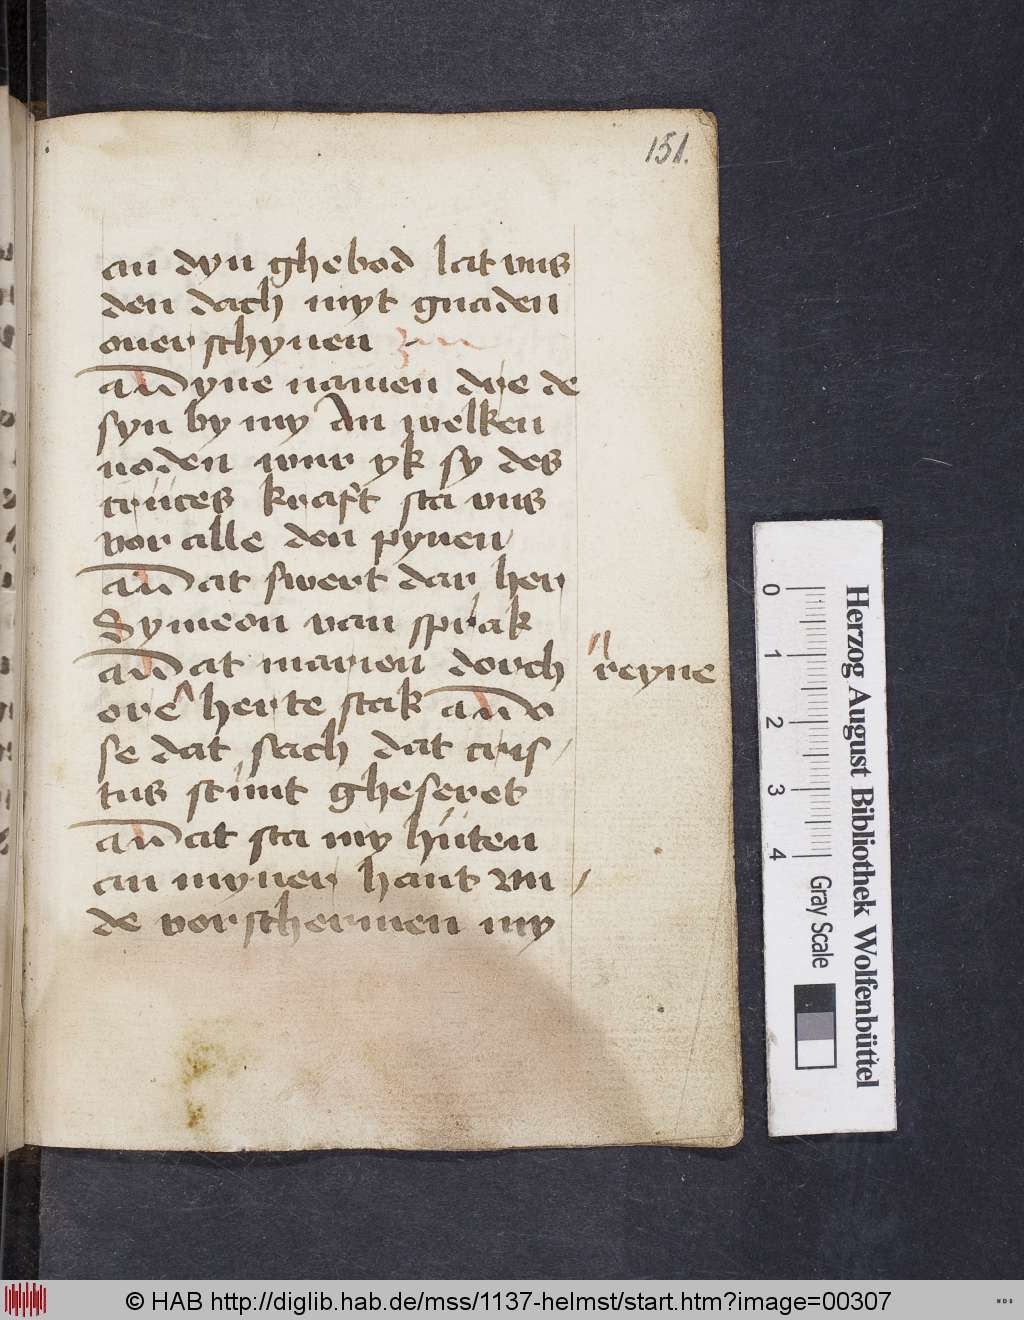 151.
an dyn ghebod lat vns
den dach myt gnaden
ouer schynen
yne namen dre de
syn by my An welken
noden wur yk sy des
crüces kraft sta vns
vor alle den pynen
at swert dar her
Symeon van sprak
at marien dorch reyne
ore herte stak
se dat sach dat cris
tus stunt gheseret
at sta my hüten
an myner hant vn
de vorschermen my
Herzog August Bibliothek Wolfenbüttel
0 1 2 3 4 Gray Scale
© HAB http://diglib.hab.de/mss/1137-helmst/start.htm?image=00307